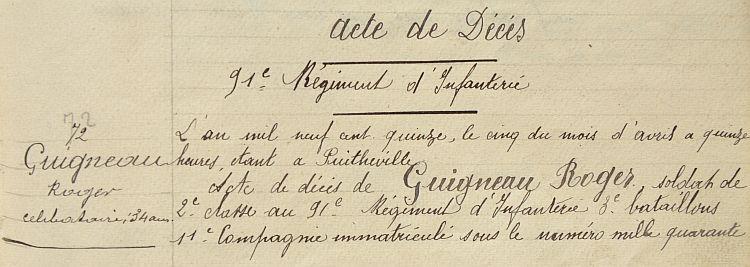 Acte de Décés
91e Régiment d'Infanterie
72
72
Guigneau
Roger
celibataire, 34 ans
L'an mil neuf cent quinze, le cinq du mois d'avril a quinze
heures, étant a Pintheville
Acte de décès de Guigneau Roger, soldat de
2e classe au 91e Régiment d'Infanterie 3e bataillons
11e Compagnie immatriculé sous le numéro mille quarante